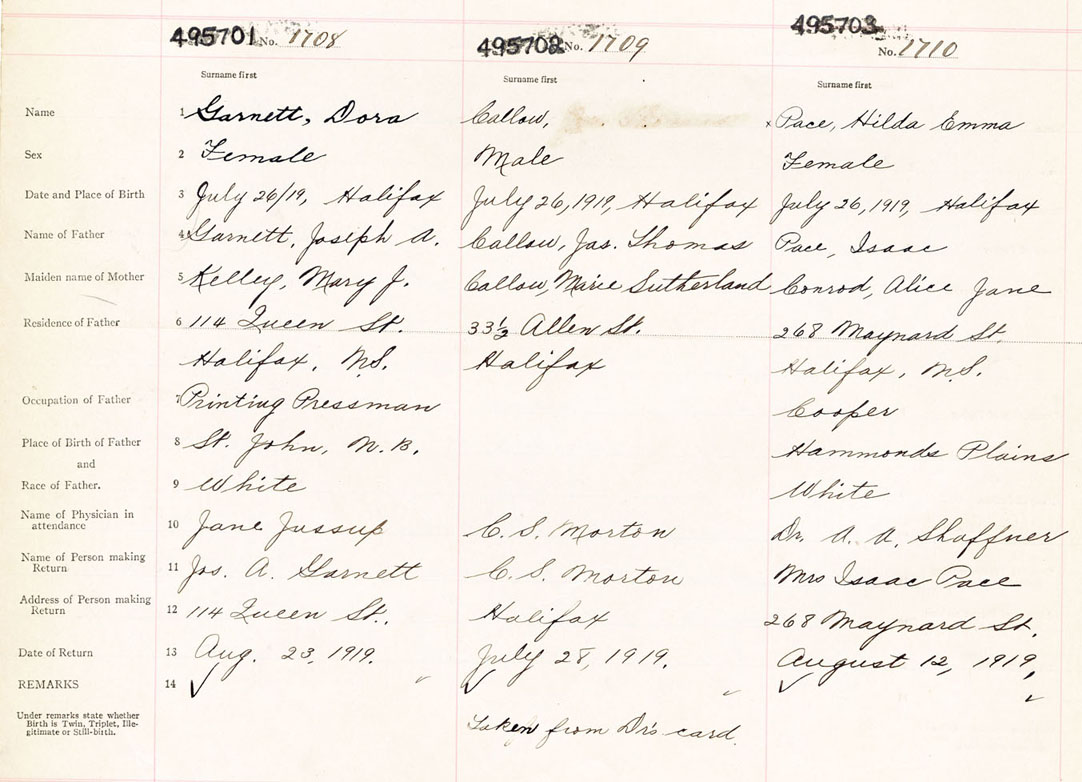 495701 No. 1708 495702 No. 1709 495703 No. 1710
Surname first Surname first Surname first
Name 1 Garnett, Dora Callow, x Pace, Hilda Emma
Sex 2 Female Male Female
Date and Place of Birth 3 July 26/19, Halifax July 26, 1919, Halifax July 26, 1919, Halifax
Name of Father 4 Garnett, Joseph A. Callow, Jas. Thomas Pace, Isaac
Maiden name of Mother 5 Kelley, Mary J. Callow, Marie Sutherland Conrod, Alice Jane
Residence of Father 6 114 Queen St. 33½ Allen St. 268 Maynard St.
Halifax, N.S. Halifax Halifax, N.S.
Occupation of Father 7 Printing Pressman Cooper
Place of Birth of Father 8 St. John, N.B. Hammonds Plains
and
Race of Father. 9 White White
Name of Physician in
attendance 10 Jane Jussup C. S. Morton Dr. A. A. Shaffner
Name of Person making
Return 11 Jos. A. Garnett C. S. Morton Mrs Isaac Pace
Address of Person making
Return 12 114 Queen St., Halifax 268 Maynard St.
Date of Return 13 Aug. 23, 1919. July 28, 1919. August 12, 1919,
REMARKS 14 ✓ ✓ ✓
Under remarks state whether
Birth is Twin, Triplet, Ille-
gitimate or Still-birth. Taken from Dr's card.